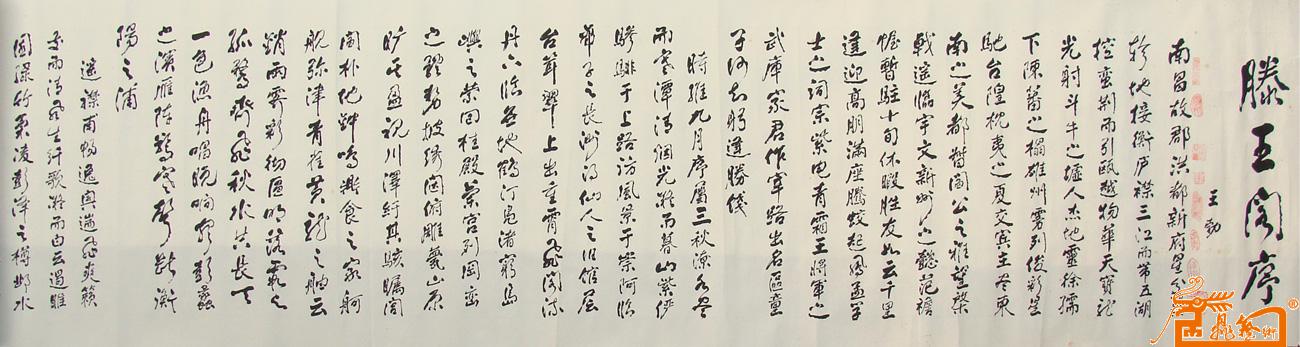 滕王阁序
王勃
南昌故郡洪都新府星分
轸地接衡庐襟三江而带五湖
控蛮荆而引瓯越物华天宝龙
光射斗牛之墟人杰地灵徐孺
下陈蕃之榻雄州雾列俊彩星
驰台隍枕夷之夏交宾主尽东
南之美都督阎公之雅望棨
戟遥临宇文新州之懿范襜
帷暂驻十旬休暇胜友如云千里
逢迎高朋满座腾蛟起凤孟学
士之词宗紫电青霜王将军之
武库家君作宰路出名区童
子何知躬逢胜饯
时维九月序属三秋潦水尽
而寒潭清烟光凝而暮山紫俨
骖騑于上路访风景于崇阿临
帝子之长洲得仙人之旧馆层
台耸翠上出重霄飞阁流
丹下临无地鹤汀凫渚穷岛
屿之萦回桂殿兰宫列冈峦
之体势披绣闼俯雕甍山原
旷其盈视川泽纡其骇瞩闾
阎扑地钟鸣鼎食之家舸
舰弥津青雀黄龙之舳云
销雨霁彩彻区明落霞与
孤鹜齐飞秋水共长天
一色渔舟唱晚响穷彭蠡
之滨雁阵惊寒声断衡
阳之浦
遥襟甫畅逸兴遄飞爽籁
发而清风生纤歌凝而白云遏睢
园绿竹气凌彭泽之樽邺水